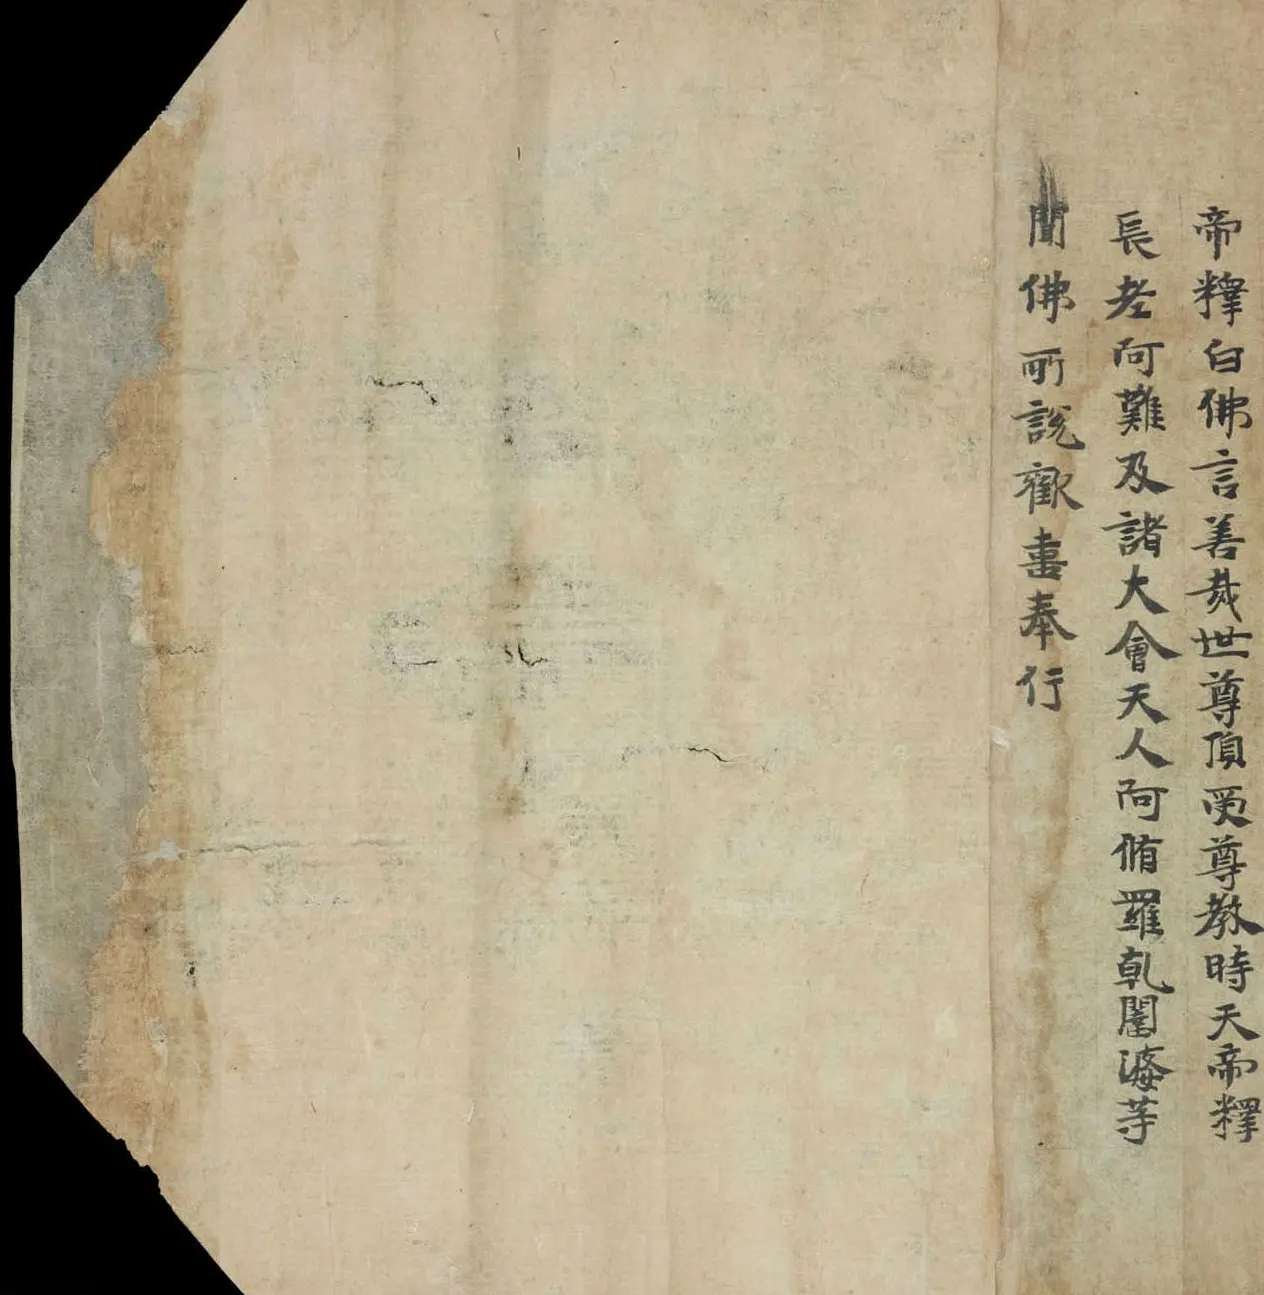 帝釋白佛言善哉世尊頂受尊教時天帝釋
長老阿難及諸大會天人阿脩羅乹闥婆等
聞佛所說歡喜奉行